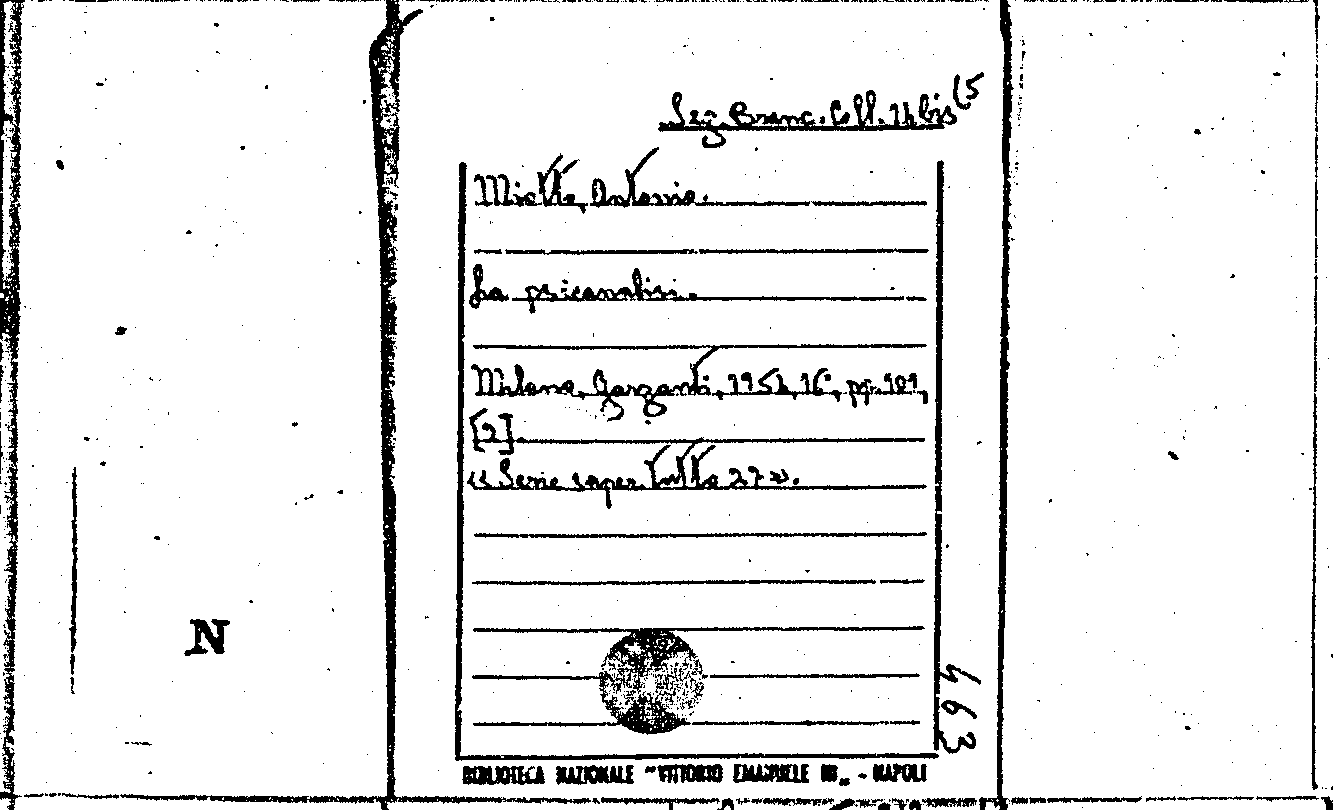 Sez. Branc. Coll. 14 bis (5
Miotto, Antonio.
La psicanalisi.
Milano, Garzanti, 1954, 16°, pp. 101,
[2].
« Serie saper tutto 27 ».
N
463
BIBLIOTECA NAZIONALE "VITTORIO EMANUELE III„ - NAPOLI